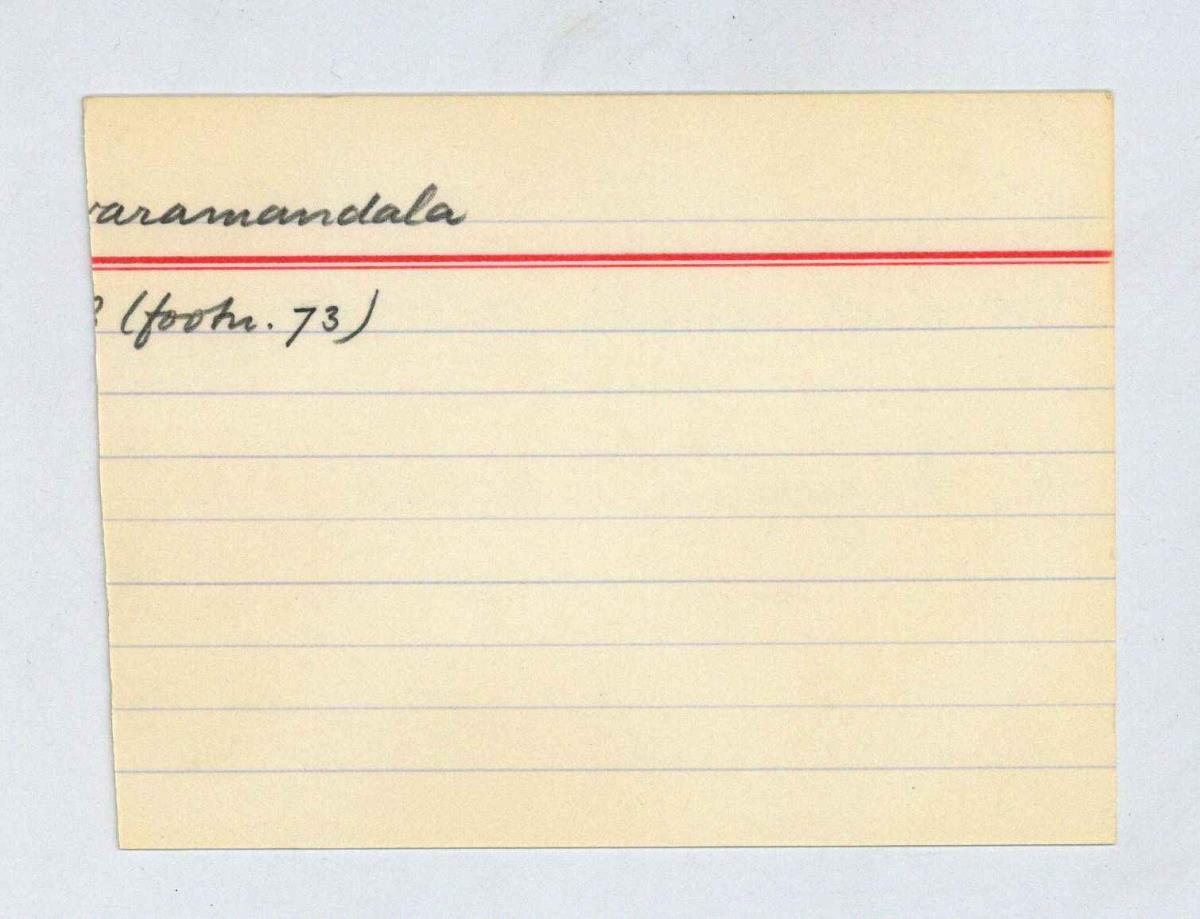 varamandala
(footn. 73)